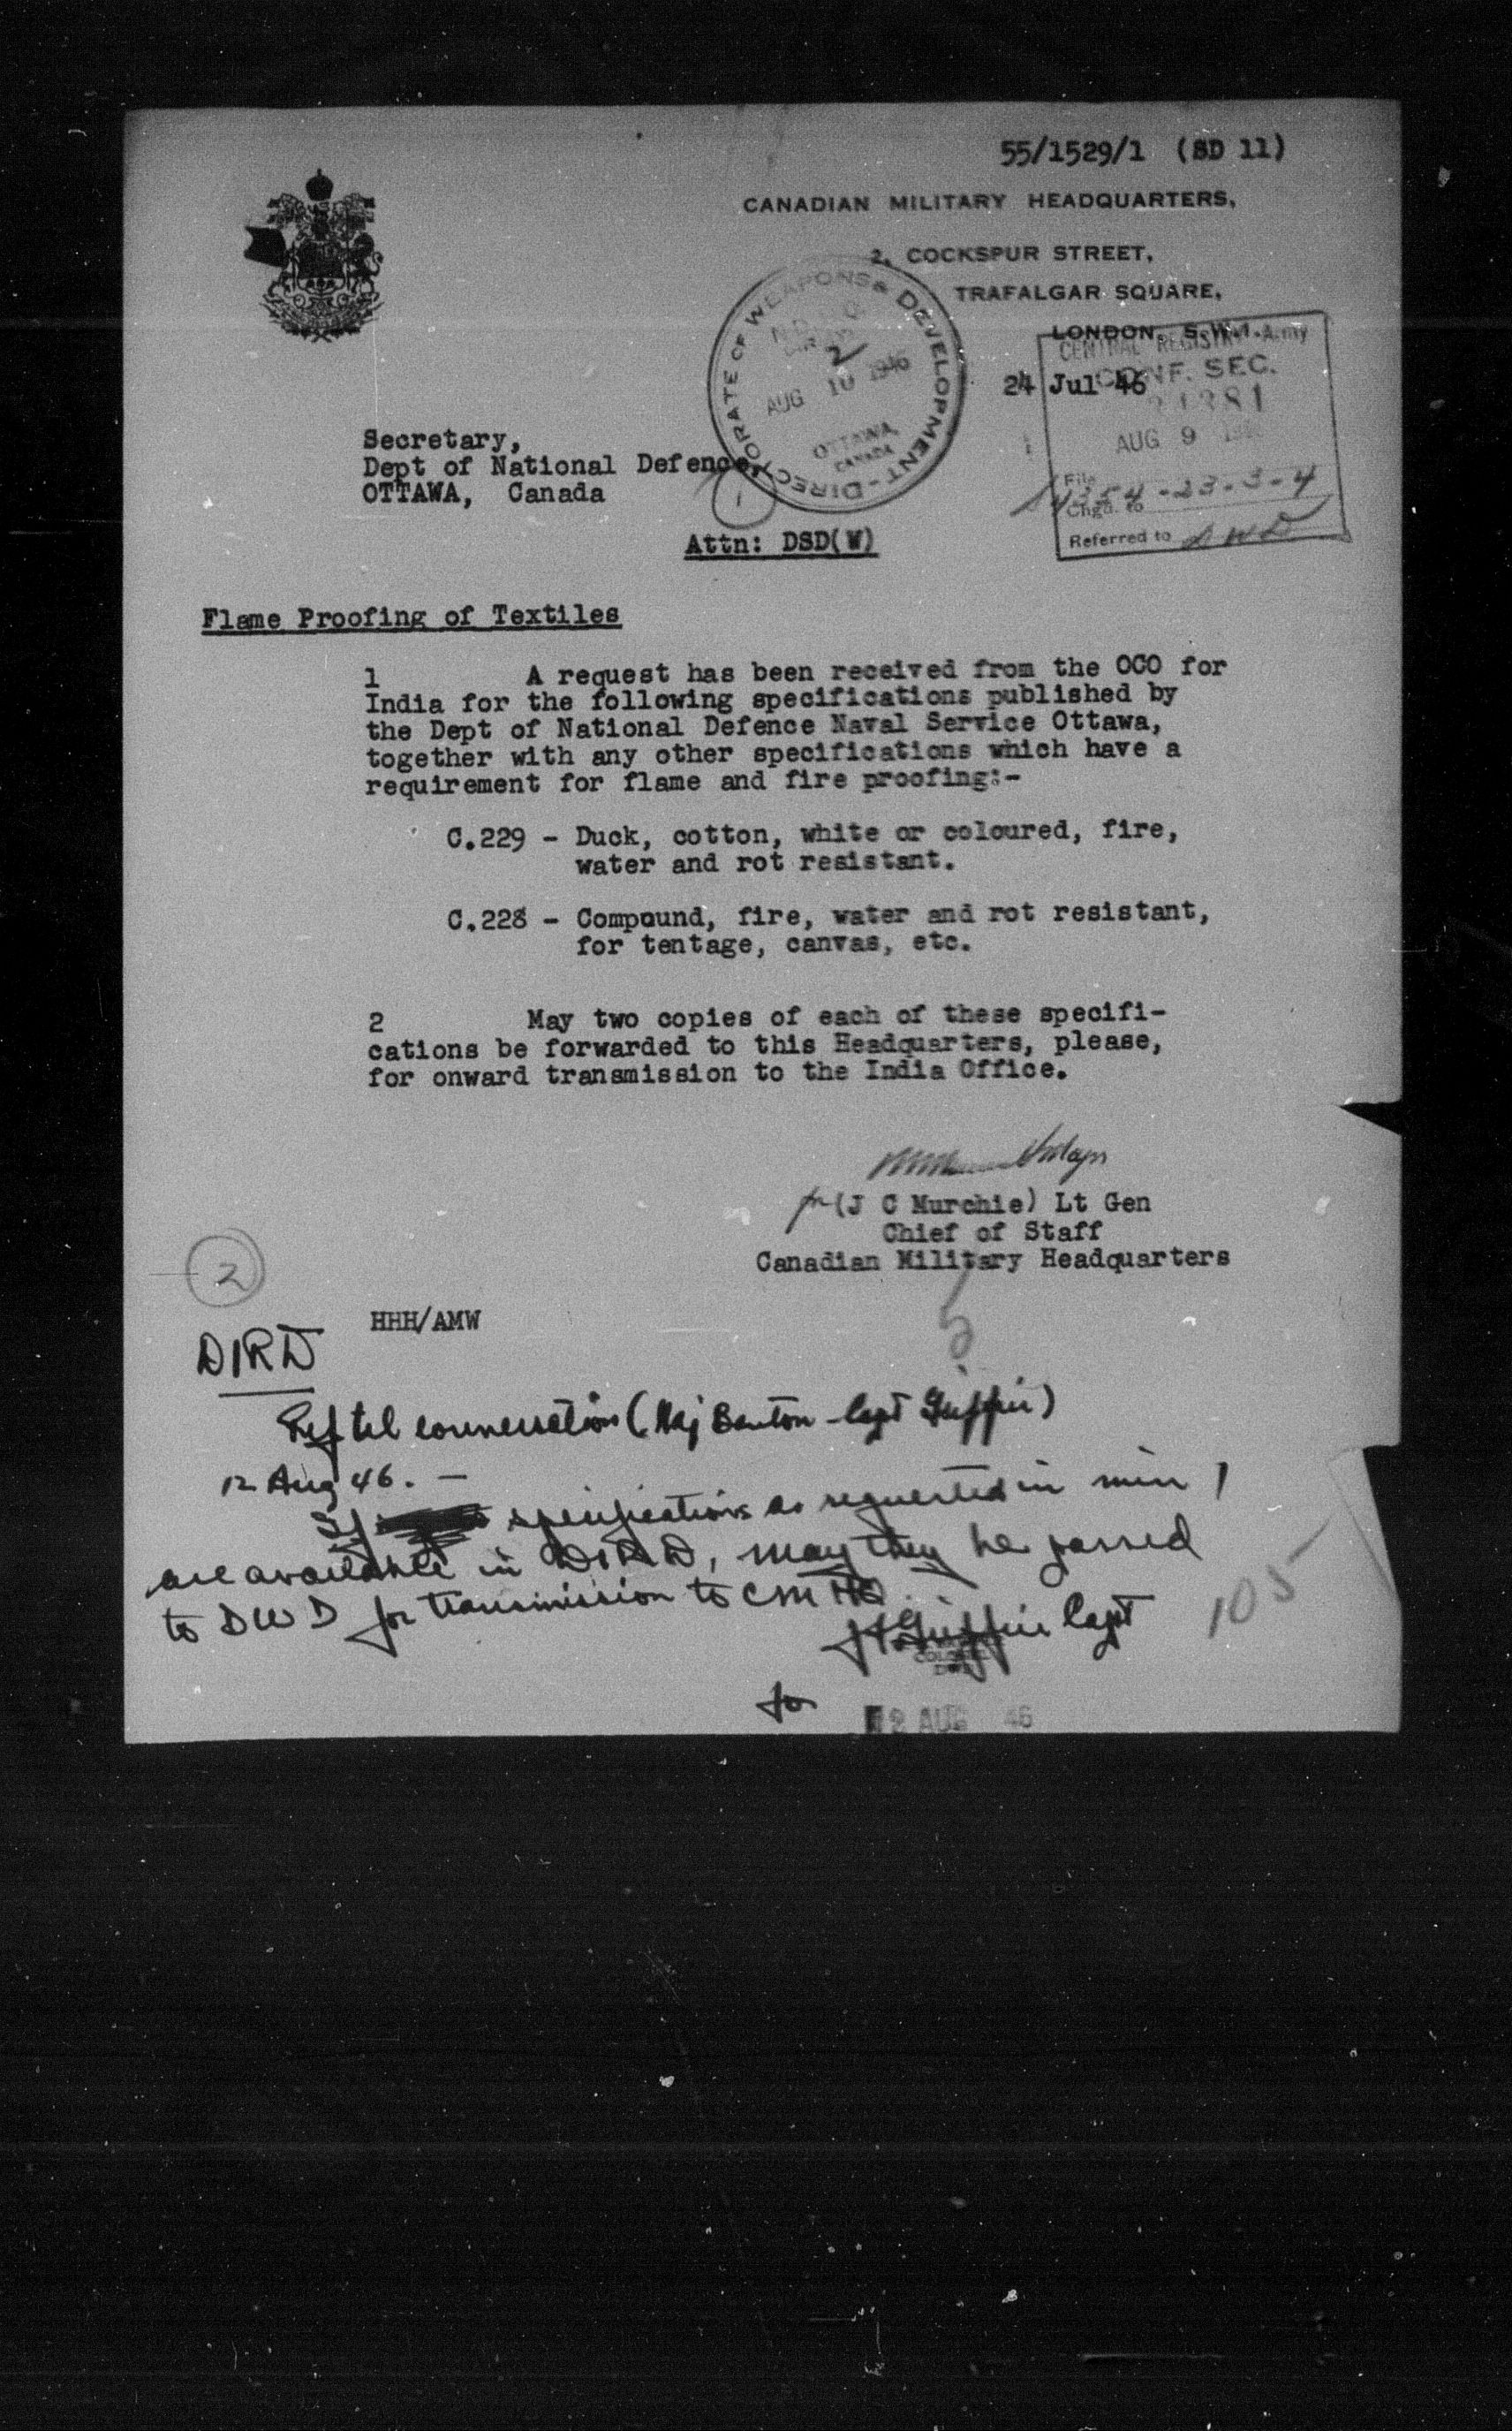 55/1529/1 (SD 11)
CANADIAN MILITARY HEADQUARTERS,
2, COCKSPUR STREET,
TRAFALGAR SQUARE,
LONDON, S.W.1.
DIRECTORATE OF WEAPONS & DEVELOPMENT
2
AUG 10 1946
OTTAWA
CANADA
24 Jul 46
CENTRAL REGISTRY - Army
CONF. SEC.
AUG 9
File
Chgd. to
Referred to DWD
Secretary,
Dept of National Defence,
OTTAWA, Canada
1
Attn: DSD(W)
Flame Proofing of Textiles
1 A request has been received from the OCO for
India for the following specifications published by
the Dept of National Defence Naval Service Ottawa,
together with any other specifications which have a
requirement for flame and fire proofing:-
C.229 - Duck, cotton, white or coloured, fire,
water and rot resistant.
C.228 - Compound, fire, water and rot resistant,
for tentage, canvas, etc.
2 May two copies of each of these specifi-
cations be forwarded to this Headquarters, please,
for onward transmission to the India Office.
for (J C Murchie) Lt Gen
Chief of Staff
Canadian Military Headquarters
2
HHH/AMW
DIRD
Ref tel conversation (Maj Benton - Capt Griffin)
12 Aug 46. -
If specifications as requested in min 1
are available in DIRD, may they be passed
to DWD for transmission to CMHQ.
Griffin Capt
105
for
12 AUG 46